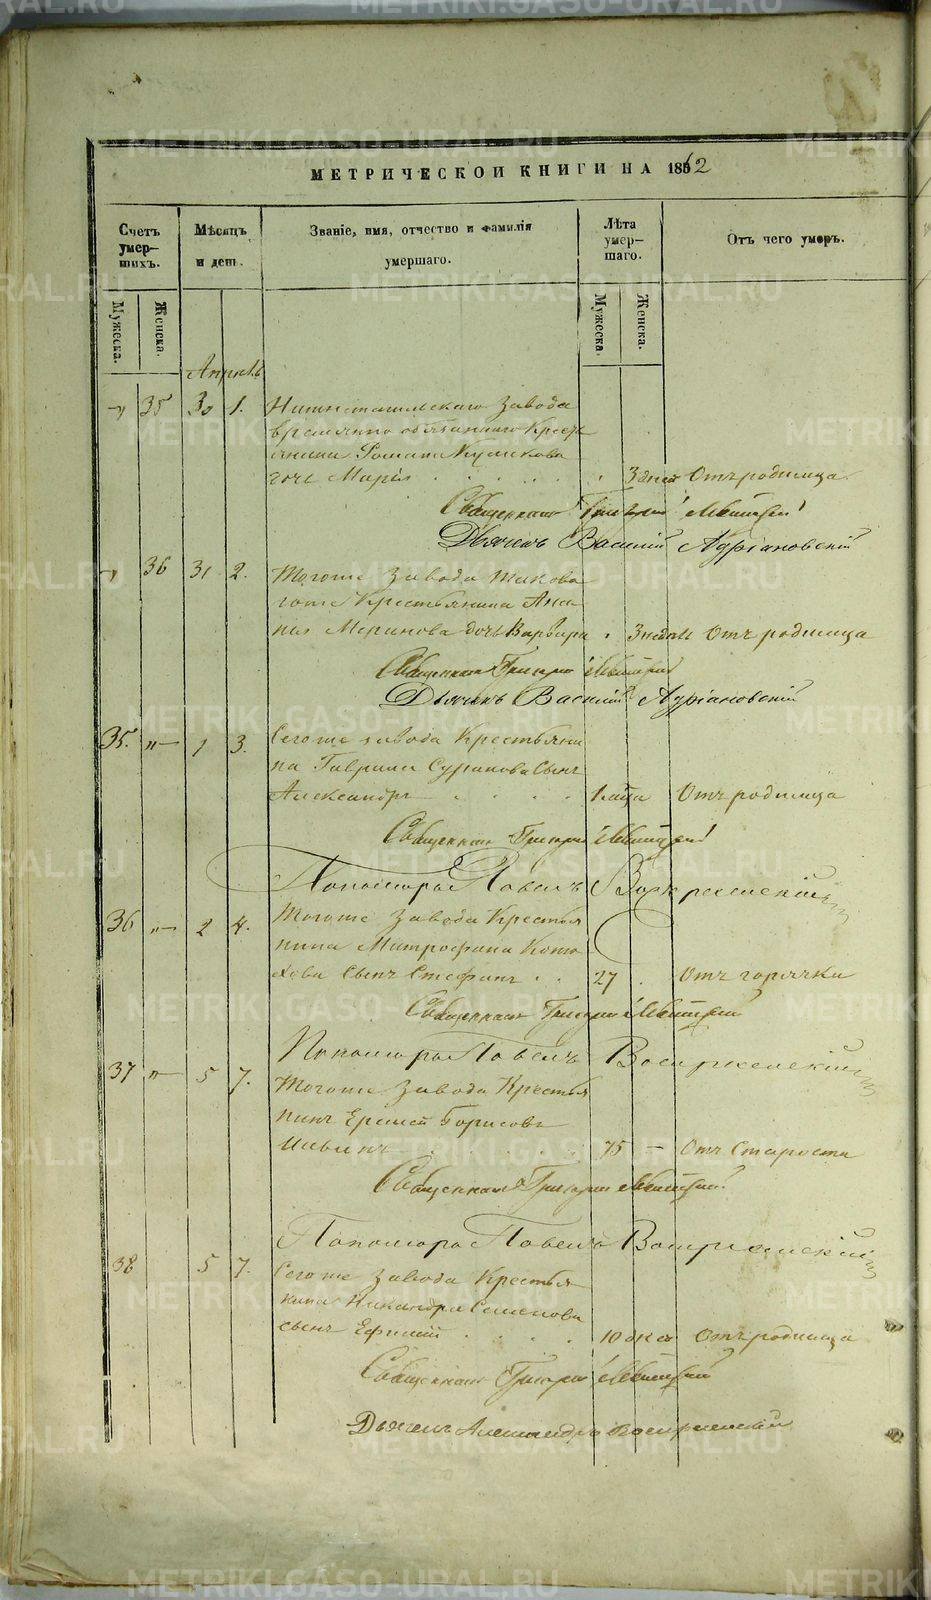 МЕТРИЧЕСКОЙ КНИГИ НА 1862
Счетъ умер-шихъ.
Мѣсяцъ и день.
Званіе, имя, отчество и фамилія умершаго.
Лѣта умер-шаго.
Отъ чего умеръ.
Мужеска.
Женска.
Мужеска.
Женска.
Апрѣль
35 30 1. Нижнетагильскаго Завода
временно обязаннаго Кресть
янина Романа Куликова
дочь Марія 3 дней Отъ родимца
Священникъ Григорій Левитскій
Дьячекъ Василій Адріановскій
36 31 2. Тогоже Завода такова
гоже Крестьянина Ана
нія Меринова дочь Варвара 3 недѣли Отъ родимца
Священникъ Григорій Левитскій
Дьячекъ Василій Адріановскій
35. "— 1 3. Сегоже завода Крестьяни
на Гаврила Сынъ
Александръ Отъ родимца
Священник Григорій Левитскій
Пономарь Павелъ Воскресенскій
36 "— 2 4. Тогоже Завода Крестья
нина Митрофана
Сынъ Стефанъ 27 Отъ горячки
Священникъ Григорій Левитскій
Пономарь Павелъ Воскресенскій
37 "— 5 7. Тогоже Завода Крестья
нинъ Еремей Борисовъ
Ильинъ 75 — Отъ Старости
Священникъ Григорій Левитскій
Пономарь Павелъ Воскресенскій
38 5 7. Сегоже Завода Крестья
нина Никандра Семенова
сынъ Ефимій 10 Отъ родимца
Священникъ Григорій Левитскій
Дьячекъ Александръ Воскресенскій
METRIKI.GASO-URAL.RU